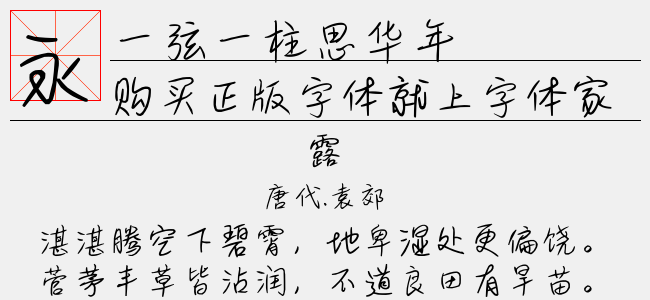 永
一弦一柱思华年
购买正版字体就上字体家
露
唐代.袁郊
湛湛腾空下碧霄，地卑湿处更偏饶。
菅茅丰草皆沾润，不道良田有旱苗。